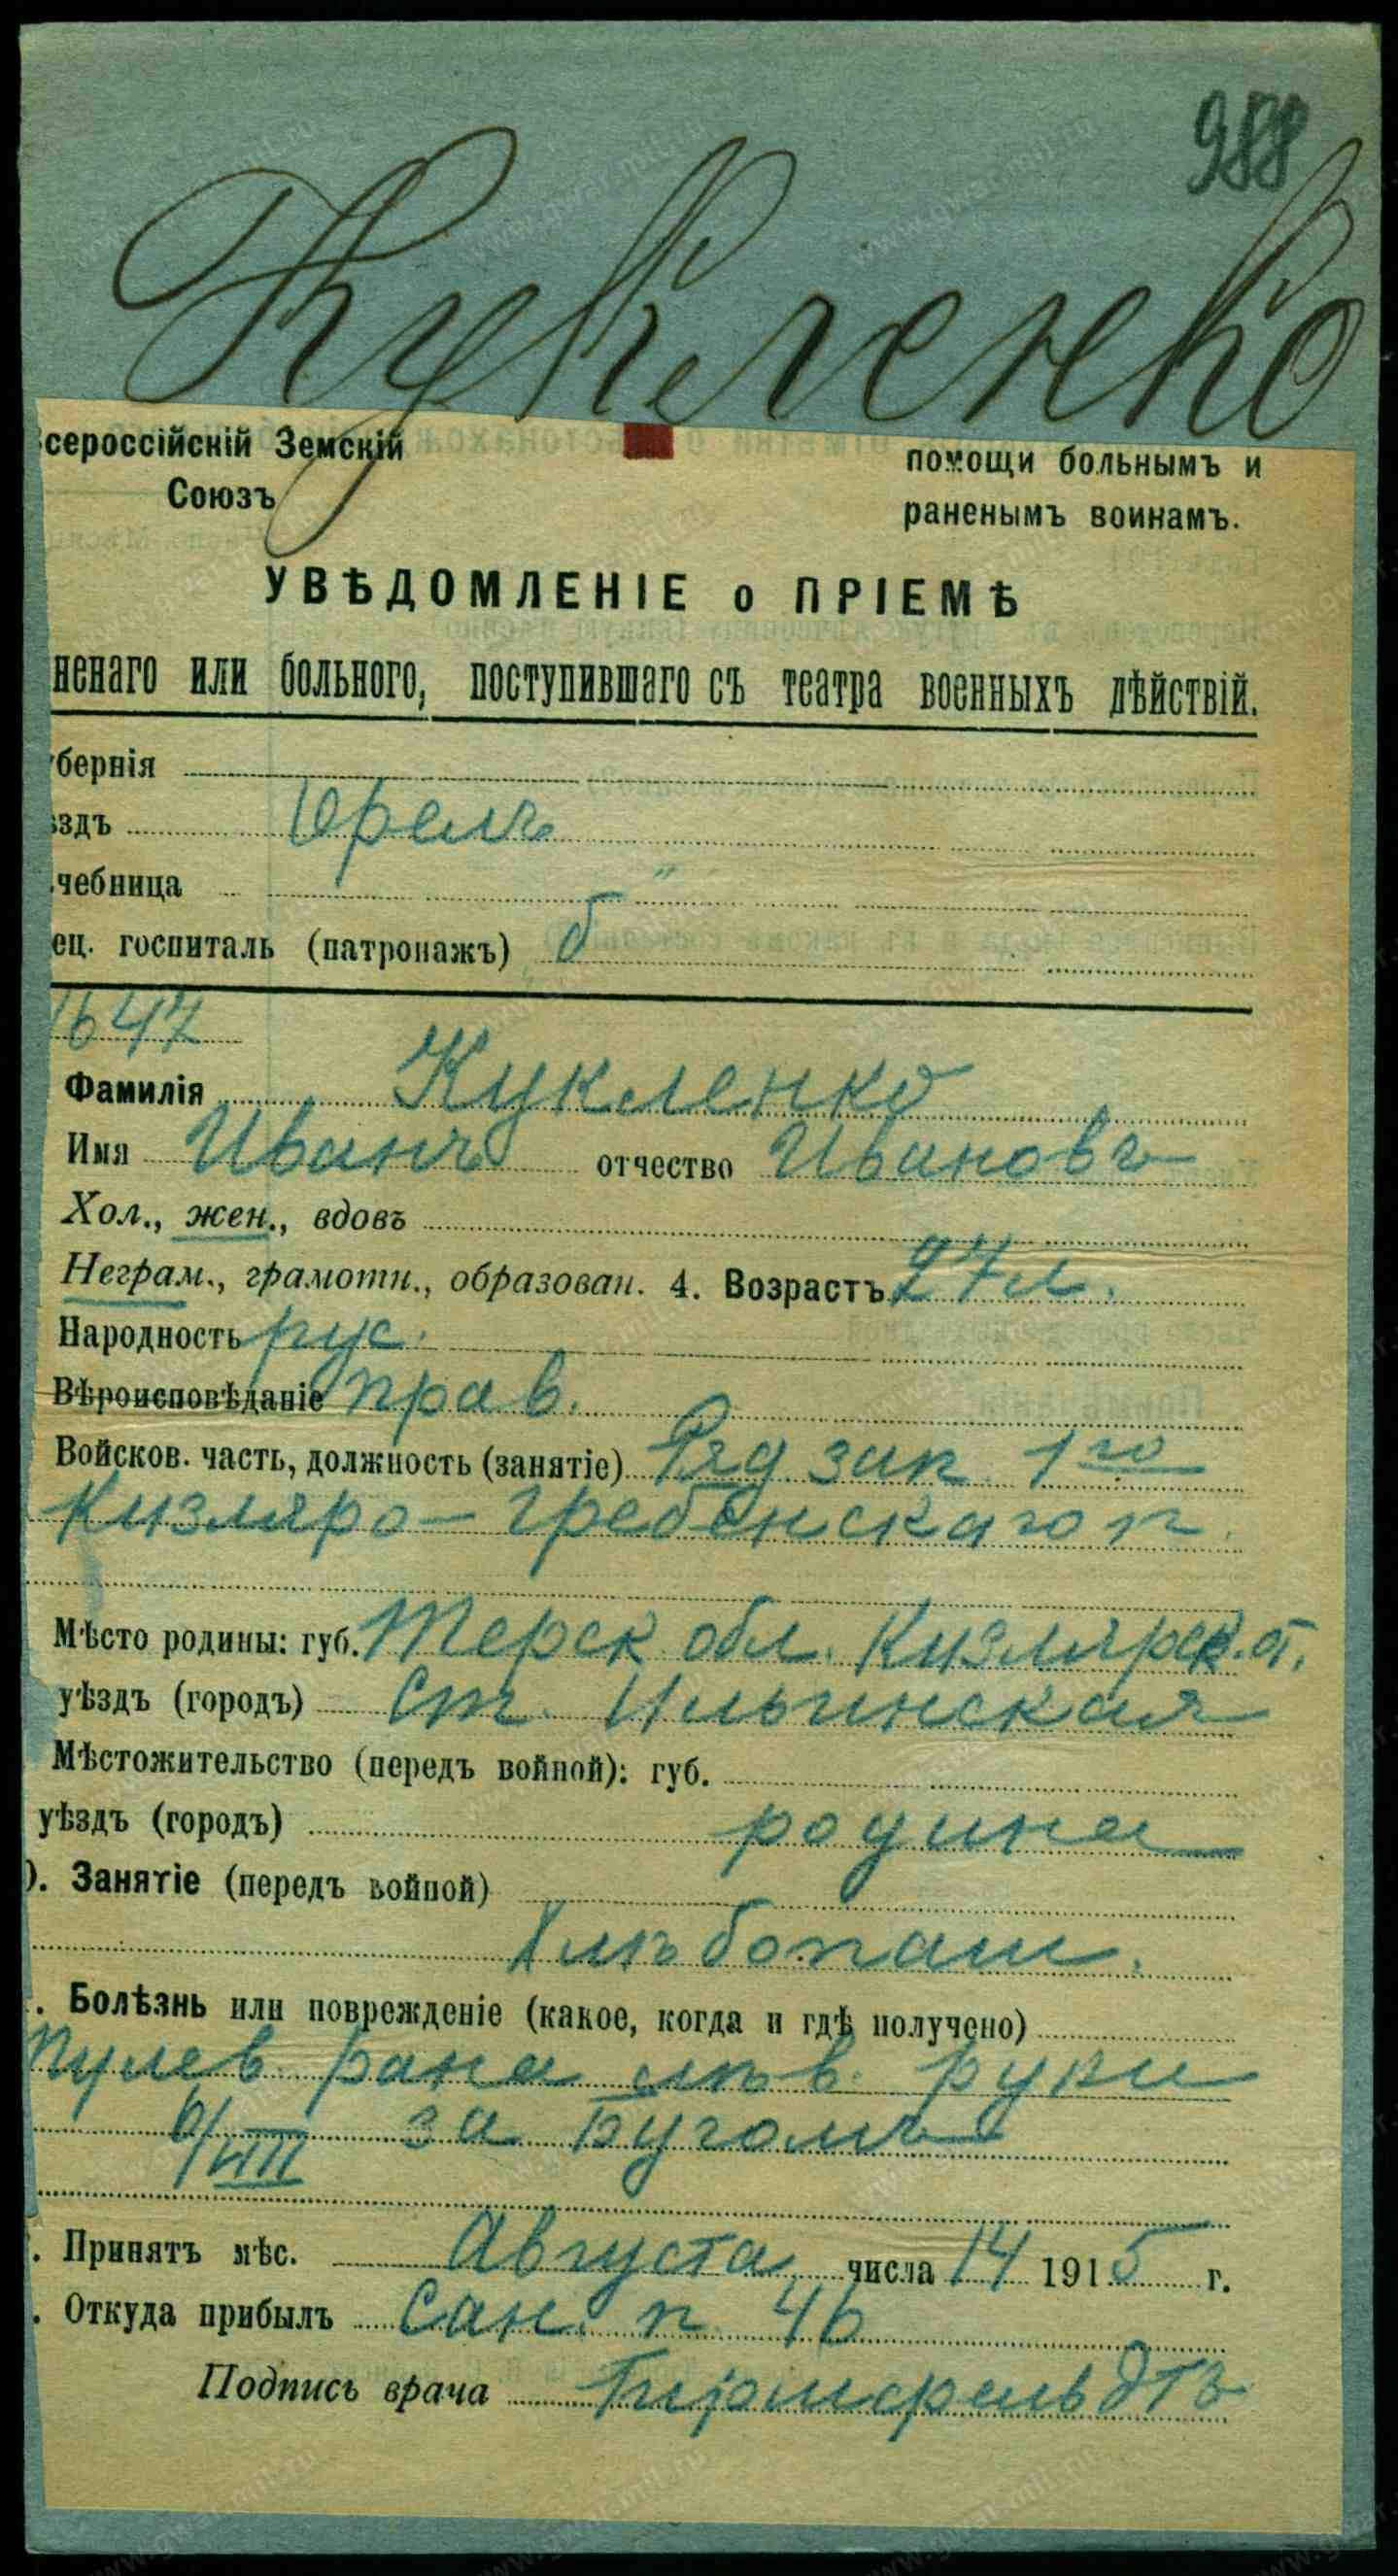 988
Кукленко
сероссійскій Земскій
Союзъ
помощи больнымъ и
раненымъ воинамъ.
УВѢДОМЛЕНІЕ о ПРІЕМѢ
ненаго или больного, поступившаго съ театра военныхъ дѣйствій.
бернія
ѣздъ Орелъ
чебница "
ец. госпиталь (патронажъ) б
1647
Фамилія Кукленко
Имя Иванъ отчество Ивановъ
Хол., жен., вдовъ
Неграм., грамотн., образован. 4. Возрастъ 27 л.
Народность рус.
Вѣроисповѣданіе прав.
Войсков. часть, должность (занятіе) Ряд зап. 1го
Кизляро-Гребенскаго п.
Мѣсто родины: губ. Терск. обл. Кизлярск. о.
уѣздъ (городъ) Ст. Ильинская
Мѣстожительство (передъ войной): губ.
уѣздъ (городъ) родина
). Занятіе (передъ войной)
Хлѣбопаш.
. Болѣзнь или поврежденіе (какое, когда и гдѣ получено)
Пулев. рана лѣв. руки
6/VIII за Бугомъ
. Принятъ мѣс. Августа числа 14 1915 г.
. Откуда прибылъ Сан. п. 46
Подпись врача